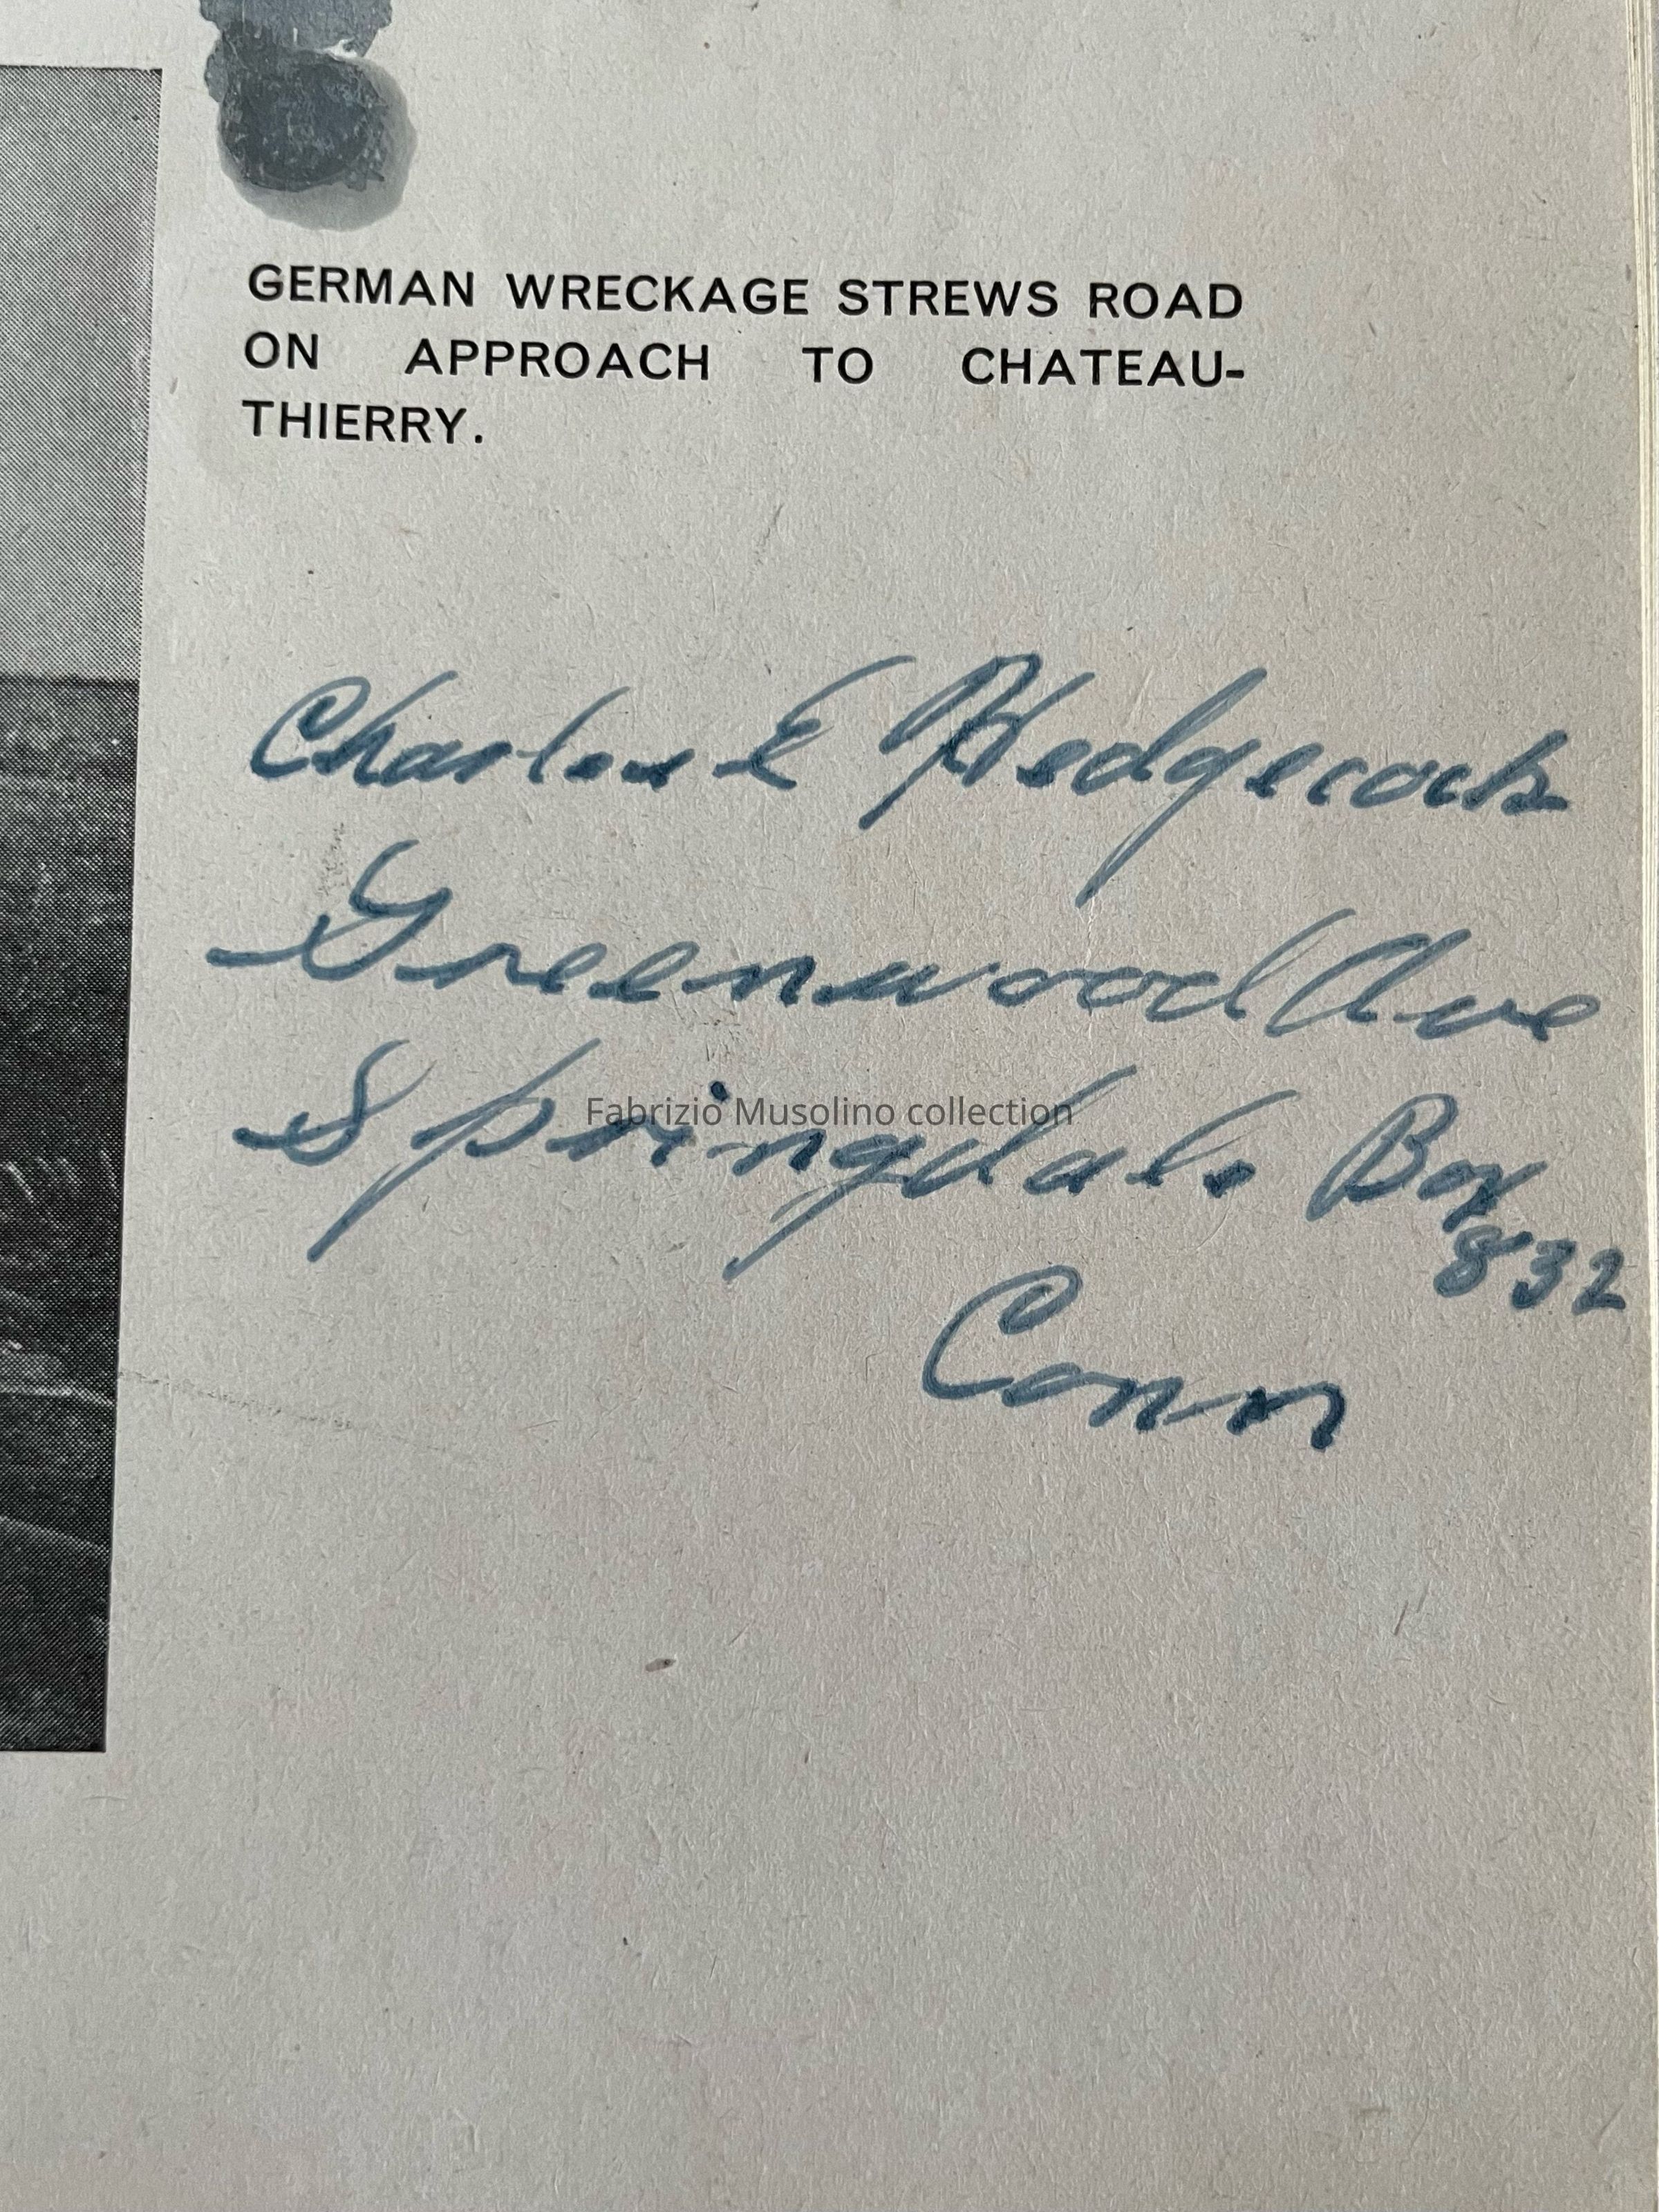 GERMAN WRECKAGE STREWS ROAD
ON APPROACH TO CHATEAU-
THIERRY.
Charles E Hedgecock
Greenwood Ave
Springdale Box
832
Conn
Fabrizio Musolino collection